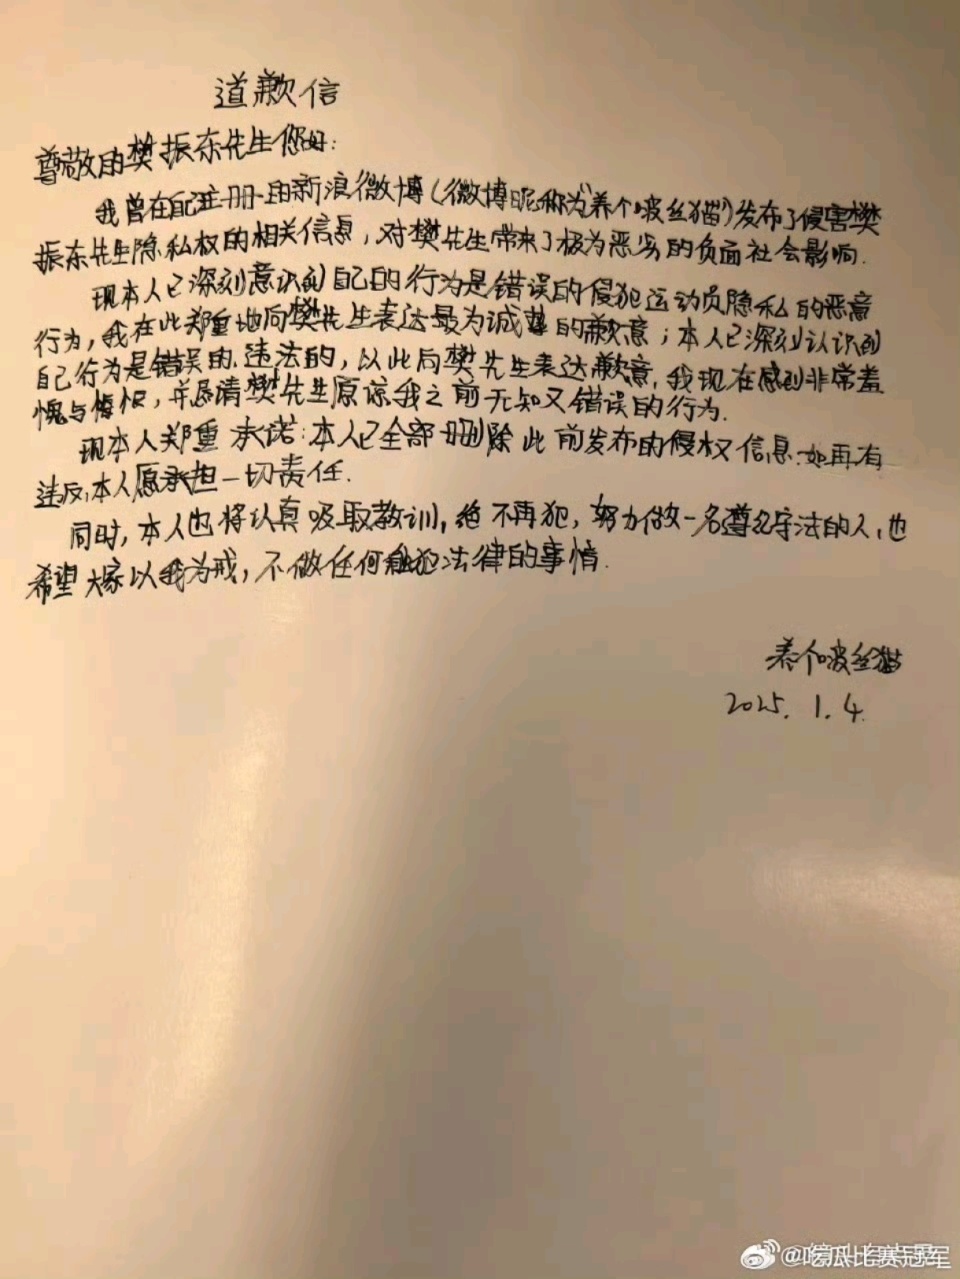 道歉信
尊敬的樊振东先生您好:
我曾在配注册的新浪微博(微博昵称为"养个啵丝猫")发布了侵害樊
振东先生隐私权的相关信息,对樊先生带来了极为恶劣的负面社会影响.
现本人已深刻意识到自己的行为是错误的侵犯运动员隐私的恶意
行为,我在此郑重地向樊先生表达最为诚挚的歉意;本人已深刻认识到
自己行为是错误的.违法的,以此向樊先生表达歉意,我现在感到非常羞
愧与悔恨,并恳请樊先生原谅我之前无知又错误的行为.
现本人郑重承诺:本人已全部删除此前发布的侵权信息.如再有
违反,本人愿承担一切责任.
同时,本人也将认真吸取教训,绝不再犯,努力做一名遵纪守法的人,也
希望大家以我为戒,不做任何触犯法律的事情.
养个啵丝猫
2025.1.4
@吃瓜比赛冠军